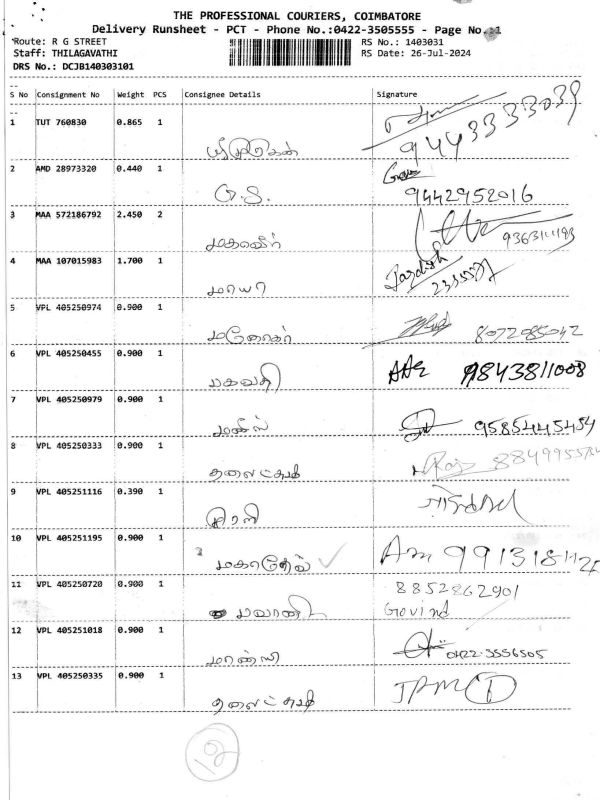 THE PROFESSIONAL COURIERS, COIMBATORE
Delivery Runsheet - PCT - Phone No.:0422-3505555 - Page No.:1
Route: R G STREET RS No.: 1403031
Staff: THILAGAVATHI RS Date: 26-Jul-2024
DRS No.: DCJB140303101
S No Consignment No Weight PCS Consignee Details Signature
1 TUT 760830 0.865 1
9443333039
2 AMD 28973320 0.440 1
G.S. 9442952016
3 MAA 572186792 2.450 2
மகாவீர்
4 MAA 107015983 1.700 1
மாயா
5 VPL 405250974 0.900 1
மனோகர் 8072085042
6 VPL 405250455 0.900 1
பகவதி 9843811008
7 VPL 405250979 0.900 1
மணீஸ் 9585445454
8 VPL 405250333 0.900 1
9 VPL 405251116 0.390 1
10 VPL 405251195 0.900 1
மகாதேவ்
11 VPL 405250720 0.900 1
8852862901
பவானி Govind
12 VPL 405251018 0.900 1
0422-3556505
13 VPL 405250335 0.900 1
JPM